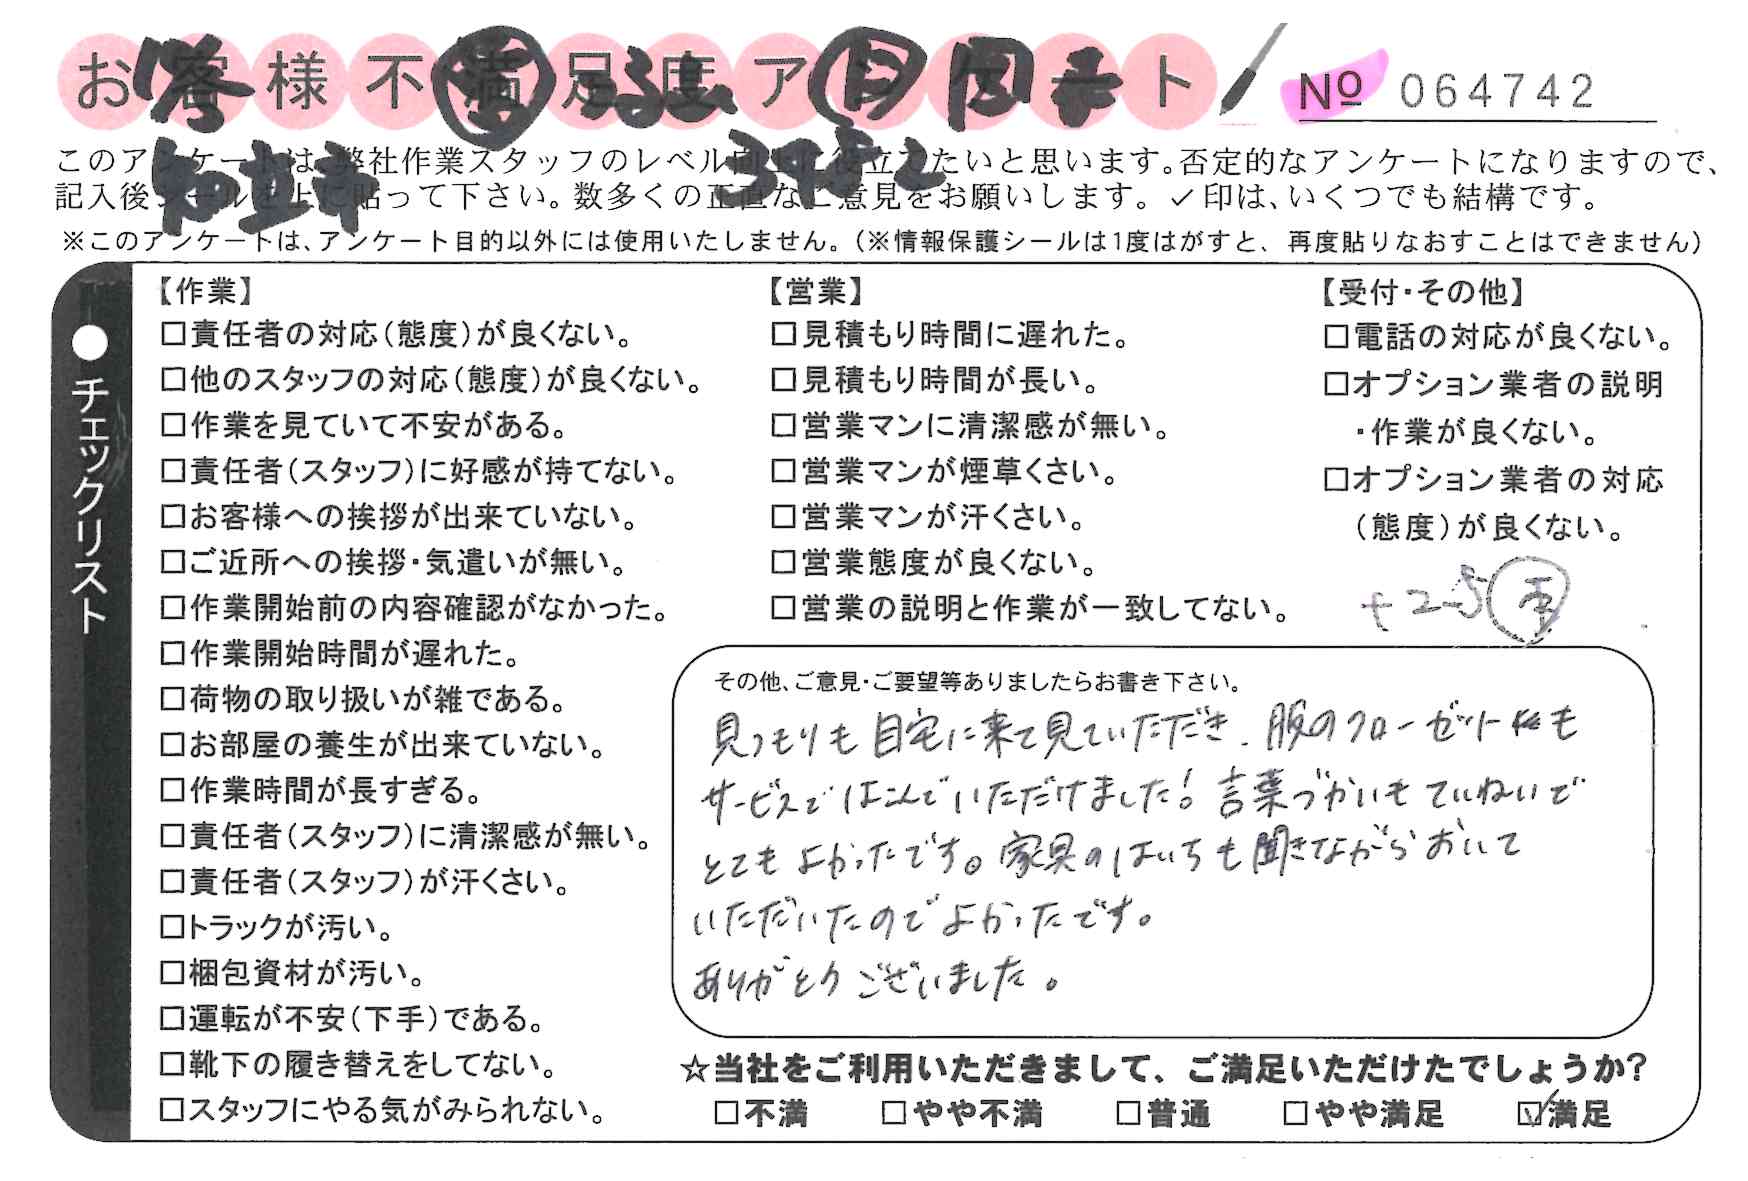 お客様不満足度アンケート
№ 064742
このアンケートは、弊社作業スタッフのレベル向上に役立てたいと思います。否定的なアンケートになりますので、
記入後シールを上に貼って下さい。数多くの正直なご意見をお願いします。✓印は、いくつでも結構です。
※このアンケートは、アンケート目的以外には使用いたしません。(※情報保護シールは1度はがすと、再度貼りなおすことはできません)
●チェックリスト
【作業】
□責任者の対応(態度)が良くない。
□他のスタッフの対応(態度)が良くない。
□作業を見ていて不安がある。
□責任者(スタッフ)に好感が持てない。
□お客様への挨拶が出来ていない。
□ご近所への挨拶・気遣いが無い。
□作業開始前の内容確認がなかった。
□作業開始時間が遅れた。
□荷物の取り扱いが雑である。
□お部屋の養生が出来ていない。
□作業時間が長すぎる。
□責任者(スタッフ)に清潔感が無い。
□責任者(スタッフ)が汗くさい。
□トラックが汚い。
□梱包資材が汚い。
□運転が不安(下手)である。
□靴下の履き替えをしてない。
□スタッフにやる気がみられない。
【営業】
□見積もり時間に遅れた。
□見積もり時間が長い。
□営業マンに清潔感が無い。
□営業マンが煙草くさい。
□営業マンが汗くさい。
□営業態度が良くない。
□営業の説明と作業が一致してない。
【受付・その他】
□電話の対応が良くない。
□オプション業者の説明
・作業が良くない。
□オプション業者の対応
(態度)が良くない。
その他、ご意見・ご要望等ありましたらお書き下さい。
見つもりも自宅に来て見ていただき、服のクローゼット他も
サービスではこんでいただけました!言葉づかいもていねいで
とてもよかったです。家具のはいちも聞きながらおいて
いただいたのでよかったです。
ありがとうございました。
☆当社をご利用いただきまして、ご満足いただけたでしょうか?
□不満 □やや不満 □普通 □やや満足 ☑満足